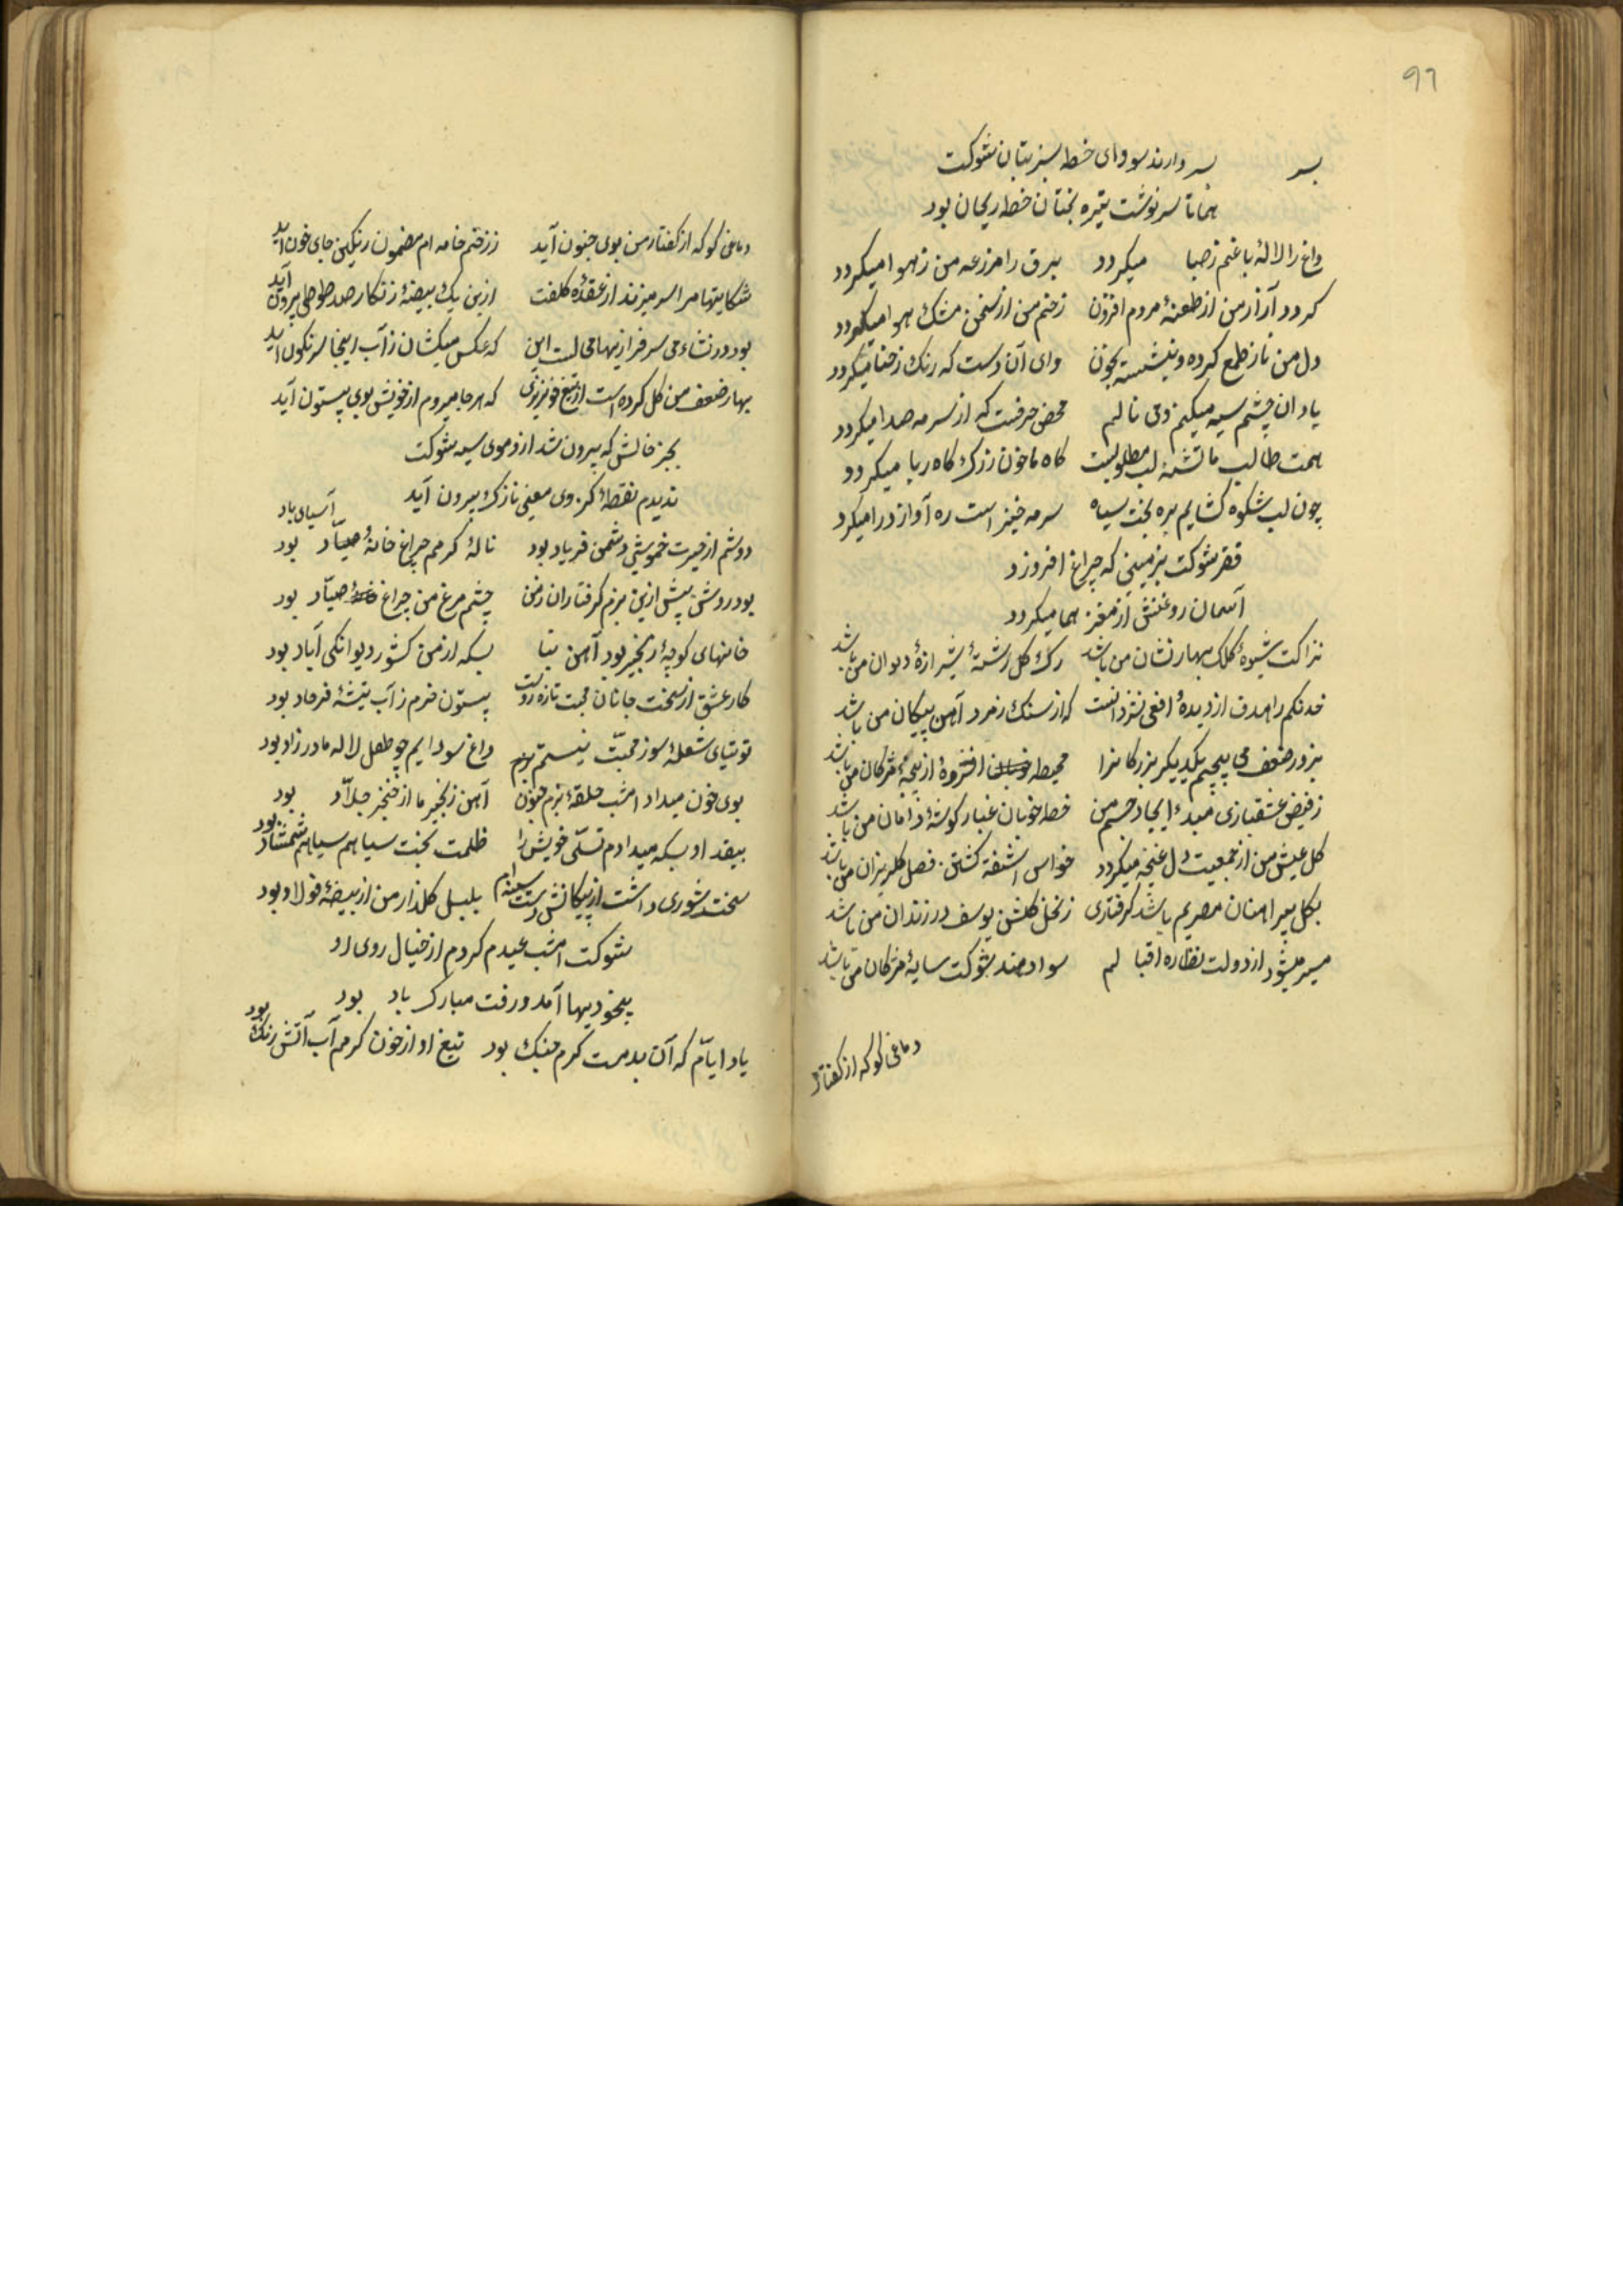 ۹۶
بسر سر دارند سودای خط سبز بتان شوکت
همانا سرنوشت تیره بختان خط ریحان بود
داغ را لالۀ باغم ز صبا میکردد برق را مزرعه من ز هوا میکردد
کردد آزار من از طعنۀ مردم افزون زخم من از سخن مشک هوا میکردد
دل من باز طمع کرده و بنشسته بخون وای آن دست که رنک ز حنا میکردد
یاد ان چشم سیه میکنم و می نالم محض حرفست که از سرمه صدا میکردد
همت طالب ما تشنۀ لب مطلوبست کاه ما خون رزک کاه ربا میکردد
چون لب شکوه کشایم بره بخت سیاه سرمه خیز است ره آواز درا میکرد
فقر شوکت بزمینی که چراغ افروزد
آسمان روغنش از مغز هما میکردد
نزاکت شیوۀ کلک بهار نشان من باشد رک کل رشتۀ شیرازۀ دیوان من باشد
خدنکم را هدف از دیدۀ افعی نزد انست که از سنک زمرد آهن پیکان من باشد
بزور ضعف می پیچیم یکدیکر بزرکانرا محیط افشردۀ از پنجۀ مژکان من باشد
ز فیض عشقبازی مبدء ایجاد حسنم من خط خوبان غبار کوشۀ دامان من باشد
کل عیش من از جمعیت دل غنچه میکردد حواس اشفته کشتن فصل کلریزان من باشد
بکل پیراهنان مصریم باشد کرفتاری ز نخل کلشن یوسف در زندان من باشد
میسر میشود از دولت نظاره اقبالم سواد هند شوکت سایۀ مژکان من باشد
دماغی کو که از کفتار
دماغی کو که از کفتار من بوی جنون آید ز زخم خامه ام مضمون رنکین جای خون آید
شکایتها مرا سر میزند از عقدۀ کلفت ازین یک بیضۀ زنکار صد طوطی بیرون آید
بود در نشاء می سرفرازیها محالست این که عکس میکشان ز آب اینجا سرنکون آید
بهار ضعف من کل کرده است از تیغ خونریزی که هر جا میروم از خویش بوی بیستون آید
بجز خالش که بیرون شد ازو موی سیه شوکت
ندیدم نقطۀ کز وی معنی نازک بیرون آید
دوشم از حیرت خموشی دشمن فریاد بود نالۀ کرمم چراغ خانۀ صیاد بود آسیای باد
بود روشن پیش ازین بزم کرفتاران ز من چشم مرغ من چراغ خانۀ صیاد بود
خانهای کوچۀ زنجیر بود آهن بنا بسکه از من کشور دیوانکی آباد بود
کار عشق از سخت جانان محبت تازه روست بیستون خرم ز آب تیشۀ فرهاد بود
توتیای شعلۀ سوز محبت نیستم داغ سودایم چو طفل لاله مادرزاد بود
بوی خون میداد امشب حلقۀ بزم جنون آهن زنجیر ما از خنجر جلاد بود
بیقد او بسکه میدادم تسلی خویش را ظلمت بخت سیاهم سیاهم شمشاد بود
سخت شوری داشت از پیکانش دست سینه ام بلبل کلزار من از بیضۀ فولاد بود
شوکت امشب عیدم کردم از خیال روی او
بیخودیها آمد و رفت مبارک باد بود
یاد ایام که آن بدمست کرم جنک بود تیغ او از خون کرمم آب آتش رنک بود